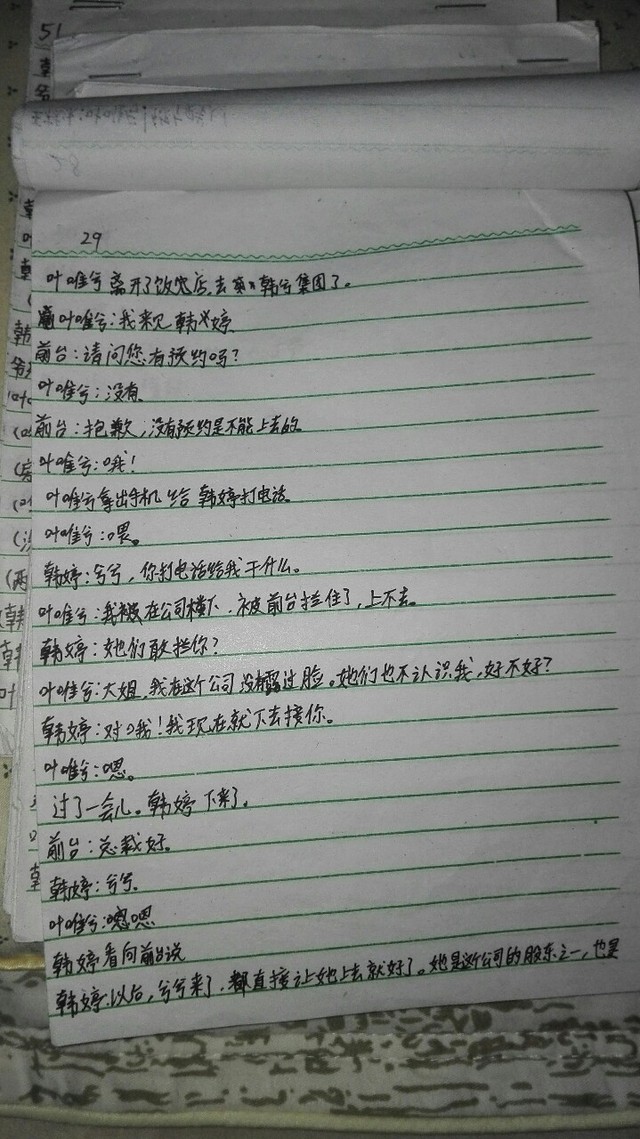 51
29
叶唯兮离开了饭店,去韩兮集团了。
叶唯兮:我来见韩婷
前台:请问您有预约吗?
叶唯兮:没有。
前台:抱歉,没有预约是不能上去的。
叶唯兮:哦!
叶唯兮拿出手机给韩婷打电话。
叶唯兮:喂。
韩婷:兮兮,你打电话给我干什么。
叶唯兮:我在公司楼下,被前台拦住了,上不去。
韩婷:她们敢拦你?
叶唯兮:大姐,我在这个公司没有露过脸。她们也不认识我,好不好?
韩婷:对哦!我现在就下去接你。
叶唯兮:嗯。
过了一会儿。韩婷下来了。
前台:总载好。
韩婷:兮兮。
叶唯兮:嗯嗯
韩婷看向前台说
韩婷:以后,兮兮来了,都直接让她上去就好了。她是这个公司的股东之一,也是